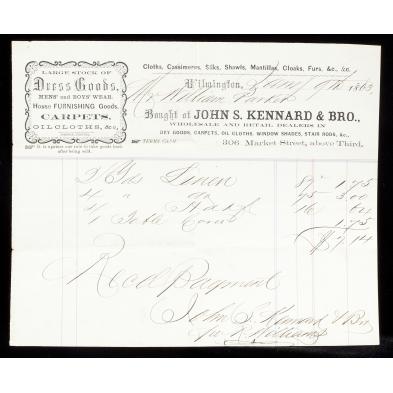 LARGE STOCK OF
Dress Goods,
MENS' and BOYS' WEAR.
House FURNISHING Goods.
CARPETS,
OILCLOTHS, &c.,
Cloths, Cassimeres, Silks, Shawls, Mantillas, Cloaks, Furs, &c., &c.
Wilmington, 9th 1863
Mr William Parker
Bought of JOHN S. KENNARD & BRO.,
WHOLESALE AND RETAIL DEALERS IN
DRY GOODS, CARPETS, OIL CLOTHS, WINDOW SHADES, STAIR RODS, &c.,
TERMS CASH
306 Market Street, above Third.
It is against our rule to take goods back
after being sold.
2 Yds Linen 1.75
4 " 75 3.00
4 16 64
1 Table Cover 1.75
$7.14
Recd Payment
John S. Kennard & Bro
Williams